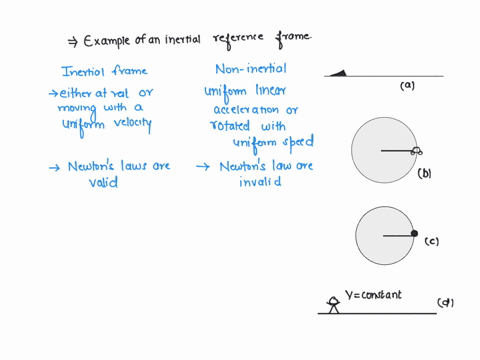 ⇒ Example of an inertial reference frame.
Inertial frame
→ either at rest or
moving with a
uniform velocity
→ Newton's laws are
valid
Non-inertial
uniform linear
acceleration or
rotated with
uniform speed
→ Newton's law are
invalid
(a)
(b)
(c)
V=constant
(d)